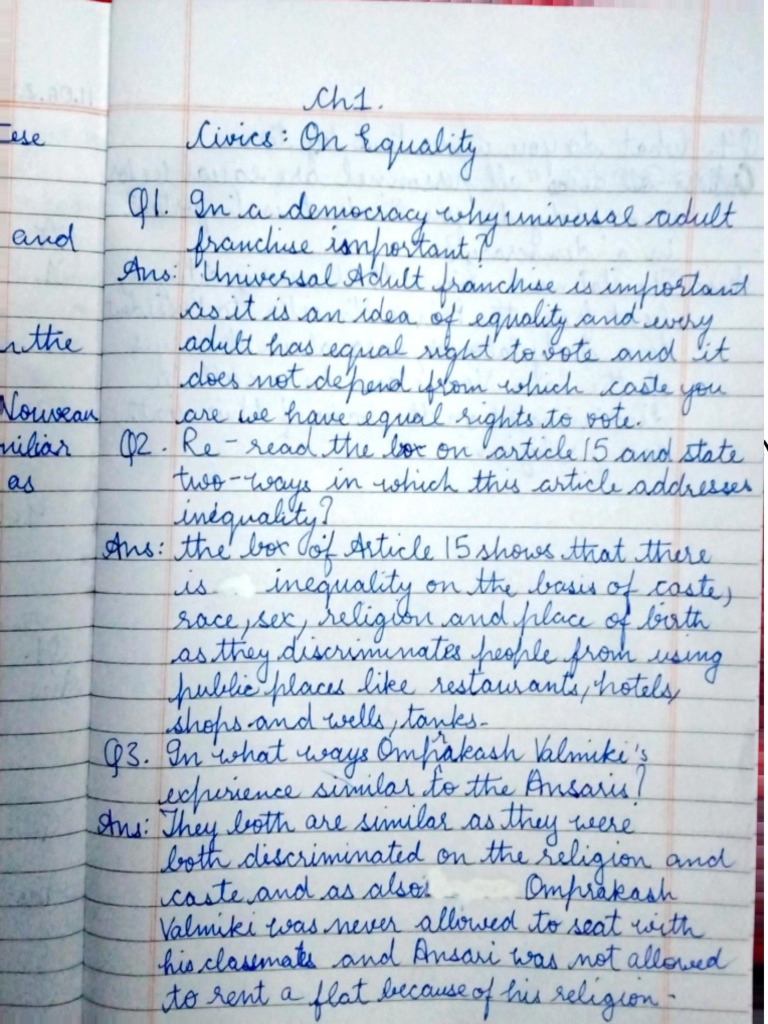 Ch1.
Civics: On Equality
Q1. In a democracy why universal adult
franchise important?
Ans: Universal Adult franchise is important
as it is an idea of equality and every
adult has equal right to vote and it
does not depend from which caste you
are we have equal rights to vote.
Q2. Re-read the box on article 15 and state
two-ways in which this article addresses
inequality?
Ans: the box of Article 15 shows that there
is inequality on the basis of caste,
race, sex, religion and place of birth
as they discriminates people from using
public places like restaurants, hotels,
shops and wells, tanks-
Q3. In what ways Omprakash Valmiki's
experience similar to the Ansaris?
Ans: They both are similar as they were
both discriminated on the religion and
caste and as also Omprakash
Valmiki was never allowed to seat with
his classmates and Ansari was not allowed
to rent a flat because of his religion-
and
the
Nouveau
as